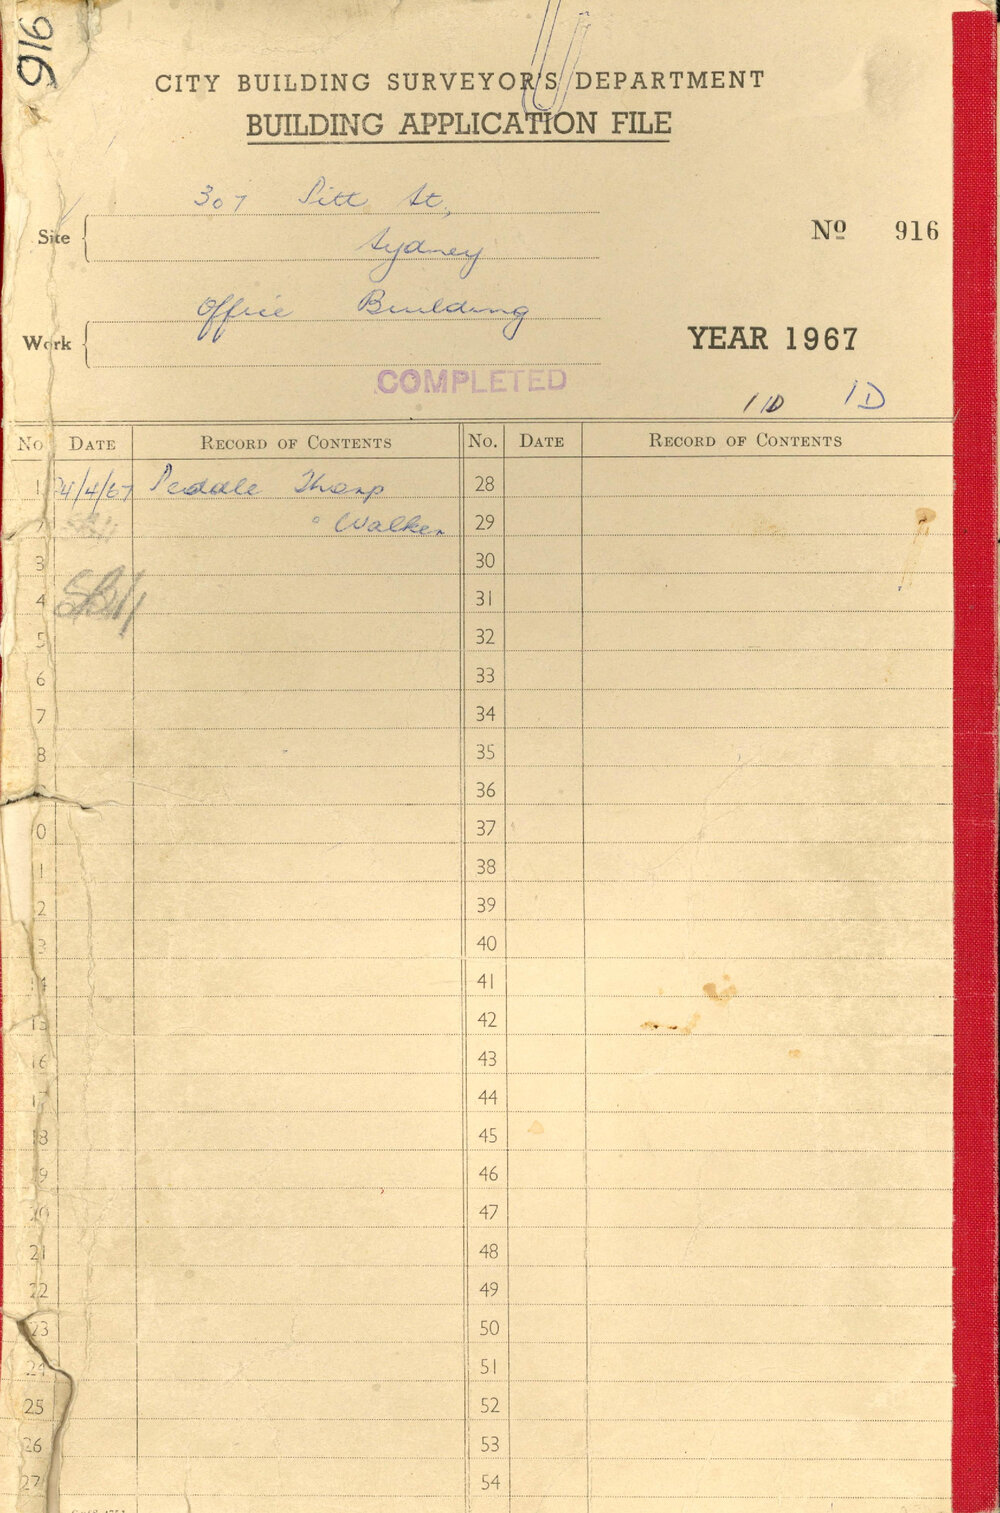 916
CITY BUILDING SURVEYOR'S DEPARTMENT
BUILDING APPLICATION FILE
307 Pitt St,
Site
Sydney
Nº 916
Office Building
Work
YEAR 1967
COMPLETED
1D 1D
No DATE RECORD OF CONTENTS No. DATE RECORD OF CONTENTS
1 4/4/67 Peddle Thorp 28
" Walker 29
3 30
4 31
5 32
6 33
7 34
8 35
36
0 37
1 38
2 39
3 40
14 41
15 42
16 43
17 44
18 45
9 46
20 47
21 48
22 49
23 50
24 51
25 52
26 53
27 54